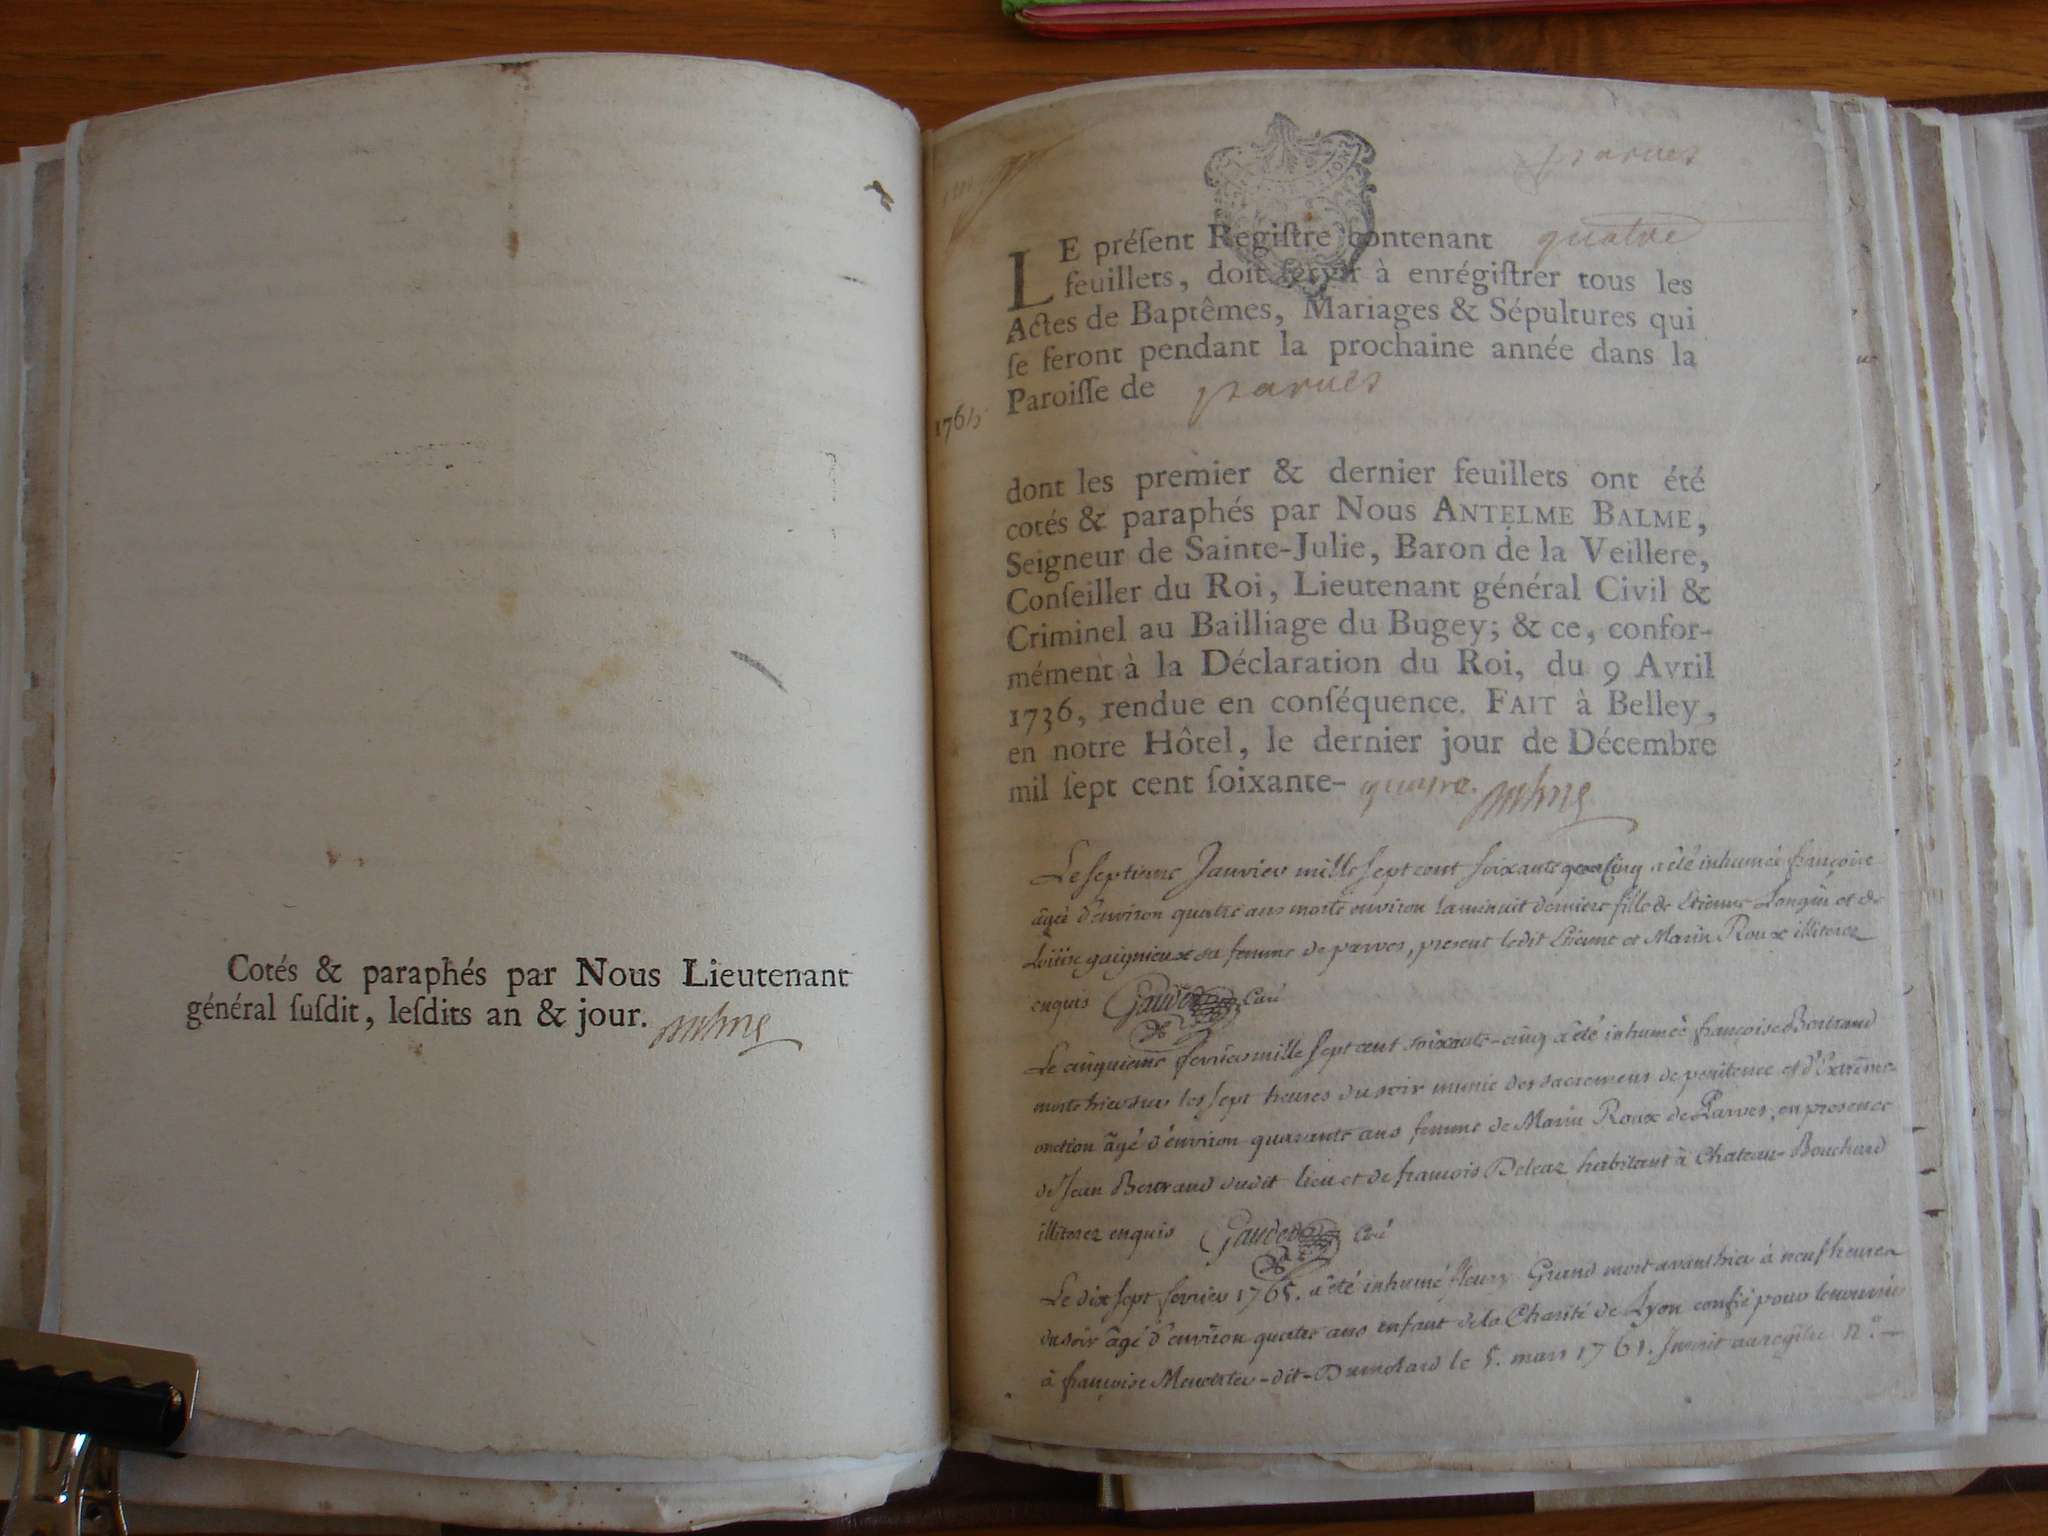 Cotés & paraphés par Nous Lieutenant
général ſuſdit, leſdits an & jour.
parves
LE préſent Regiſtre contenant quatre
feuillets, doit ſervir à enrégiſtrer tous les
Actes de Baptêmes, Mariages & Sépultures qui
ſe feront pendant la prochaine année dans la
Paroiſſe de parves
1765
dont les premier & dernier feuillets ont été
cotés & paraphés par Nous ANTELME BALME,
Seigneur de Sainte-Julie, Baron de la Veillere,
Conſeiller du Roi, Lieutenant général Civil &
Criminel au Bailliage du Bugey; & ce, confor-
mément à la Déclaration du Roi, du 9 Avril
1736, rendue en conſéquence. FAIT à Belley,
en notre Hôtel, le dernier jour de Décembre
mil ſept cent ſoixante- quatre.
Le septieme Janvier mille sept cent soixante cinq a été inhumée françoise
âgée d'environ quatre ans morte environ la minuit derniere fille de Etienne Longin et de
gaignieux sa femme de parves, present ledit Etienne et Marin Roux illiterez
enquis Gaudet Curé
Le cinquieme fevrier mille sept cent soixante-cinq a été inhumée françoise Bertrand
morte hier sur les sept heures du soir munie des sacremens de penitence et d'Extrême-
onction âgé d'environ quarante ans femme de Marin Roux de Parves, en presence
de Jean Bertrand dudit lieu et de françois habitant à Chateau-Bouchard
illiterez enquis Gaudet Curé
Le dix sept fevrier 1765. a été inhumé fleury Grand mort avanthier à neuf heures
du soir âgé d'environ quatre ans enfant de la Charité de Lyon confié pour le nourrir
à françoise -dit-Dumolard le 5. mars 1761. Inscrit au registre N.º